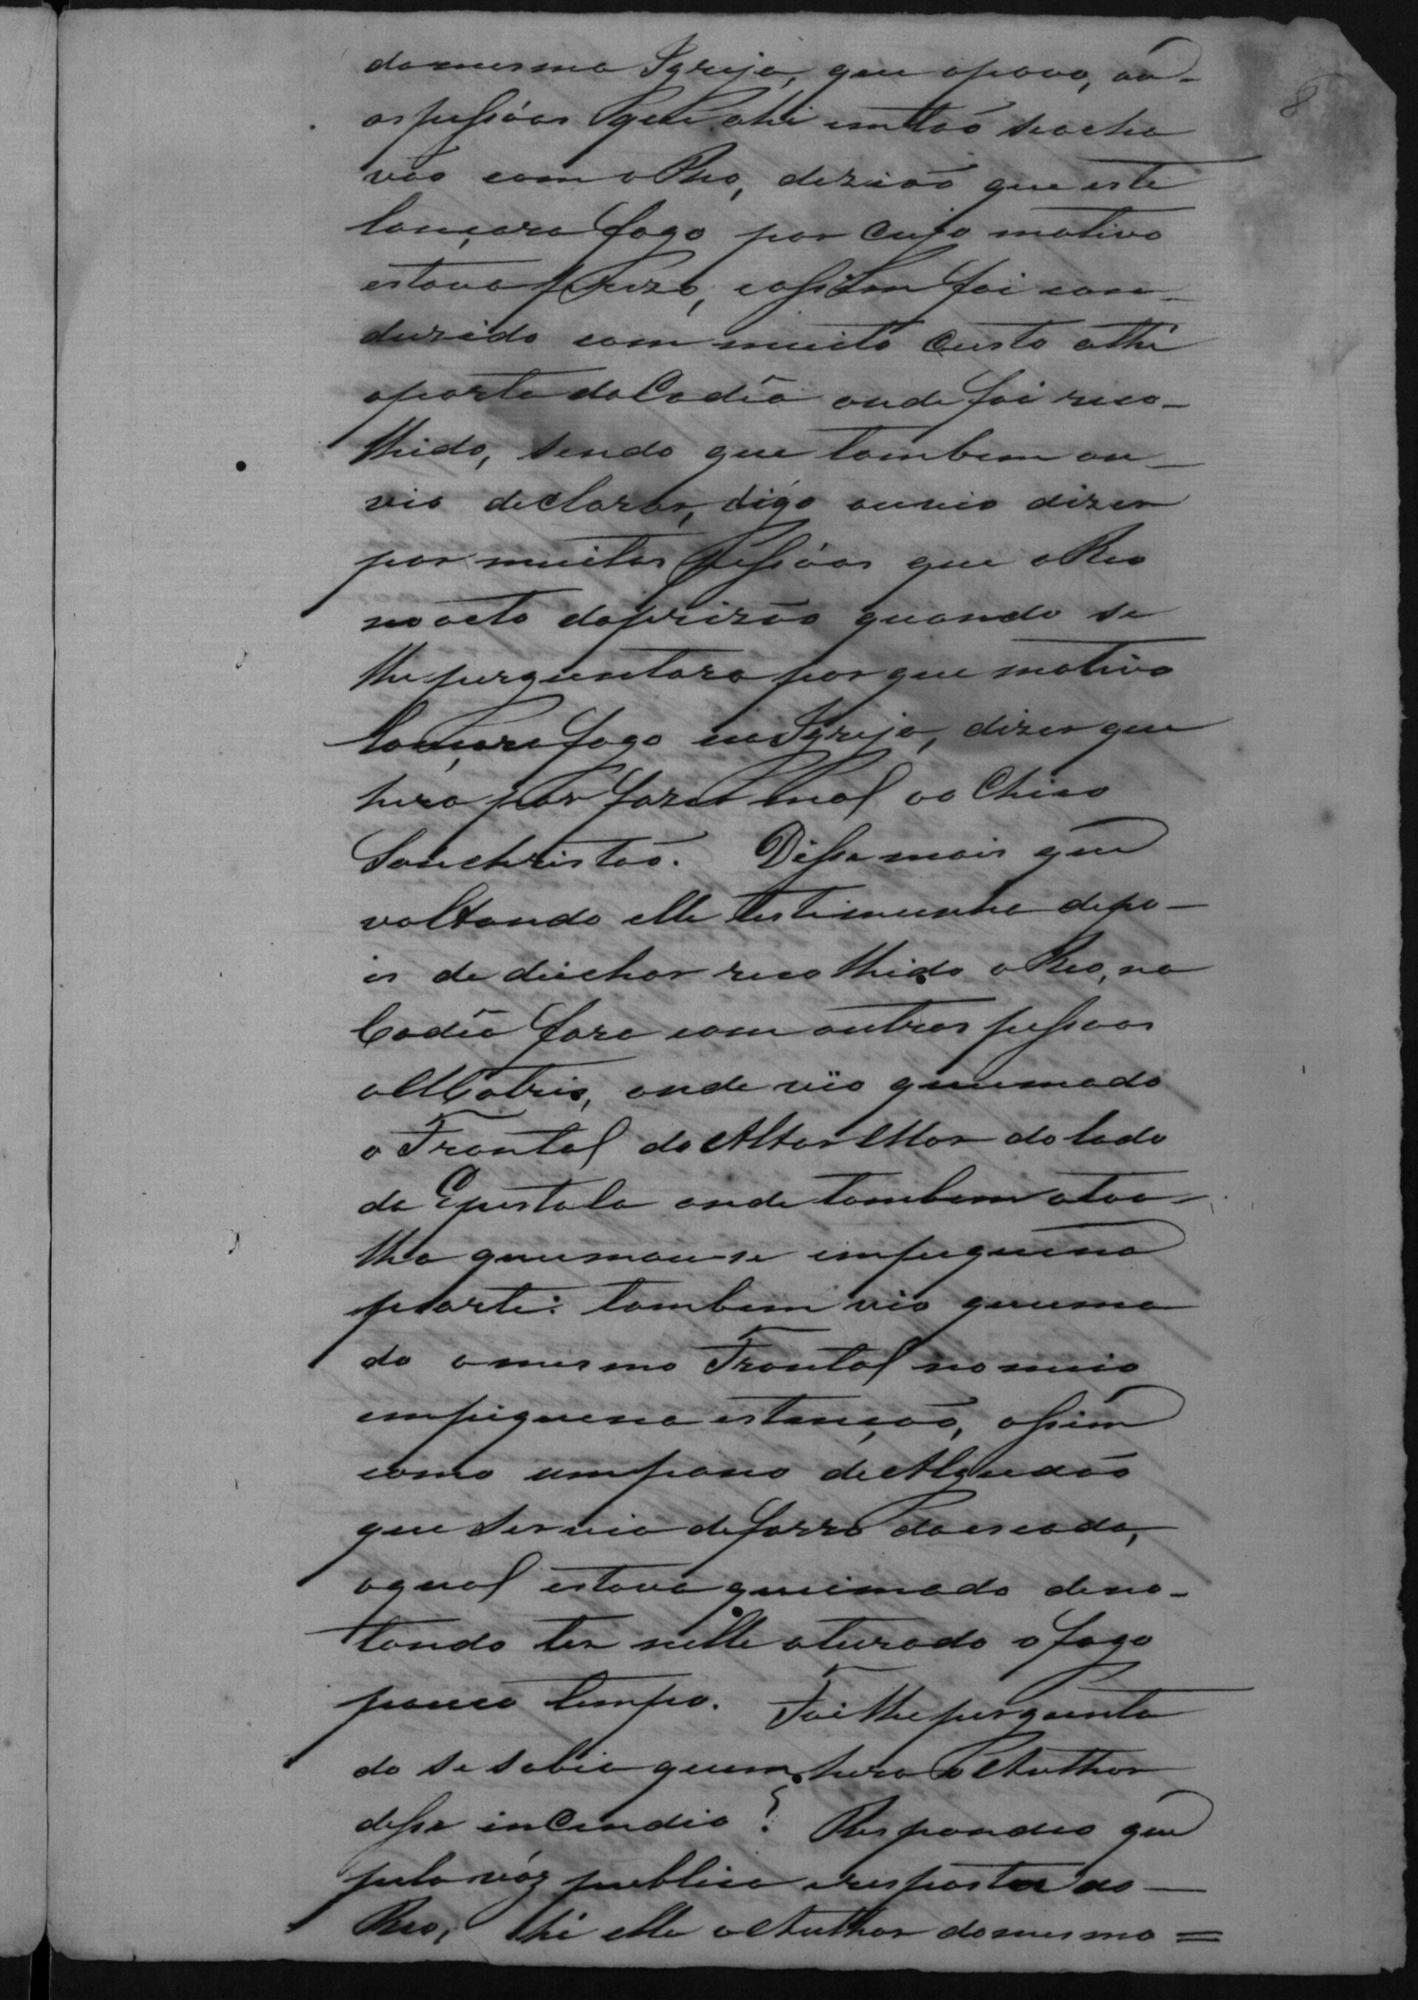 8
da mesma Igreja, que o povo, ou
as pessôas que ahi então se acha
vão com o Reo, dizião que este
lançara fogo por cujo motivo
estava prezo, e assim foi con-
duzido com muito custo athé
a porta da Cadêa onde foi reco-
lhido, sendo que tambem ou-
vio declarar, digo ouvio dizer
por muitas pessôas que o Reo
no acto da prizão quando se
lhe perguntara por que motivo
lançara fogo na Igreja, dizer que
hera por fazer mal ao Chico
Sanchristão. Disse mais que
voltando elle testimunha depo-
is de deichar recolhido o Reo, na
Cadêa fora com outras pessoas
a Matris, onde vio queimado
o Frontal do Altar Mor do lado
da Epistola onde tambem a toa-
lha queimou-se em pequena
parte: tambem vio queima
do o mesmo Frontal no meio
em piquena estenção, assim
como um pano de Algudão
que servia de forro da escada,
o qual estava queimado deno-
tando ter nelle aturado o fogo
pouco tempo. Foi lhe pergunta
do se sabia quem hera o Author
desse incendio? Respondeo que
pela vóz publica e resposta do
Reo, hé elle o Author do mesmo =